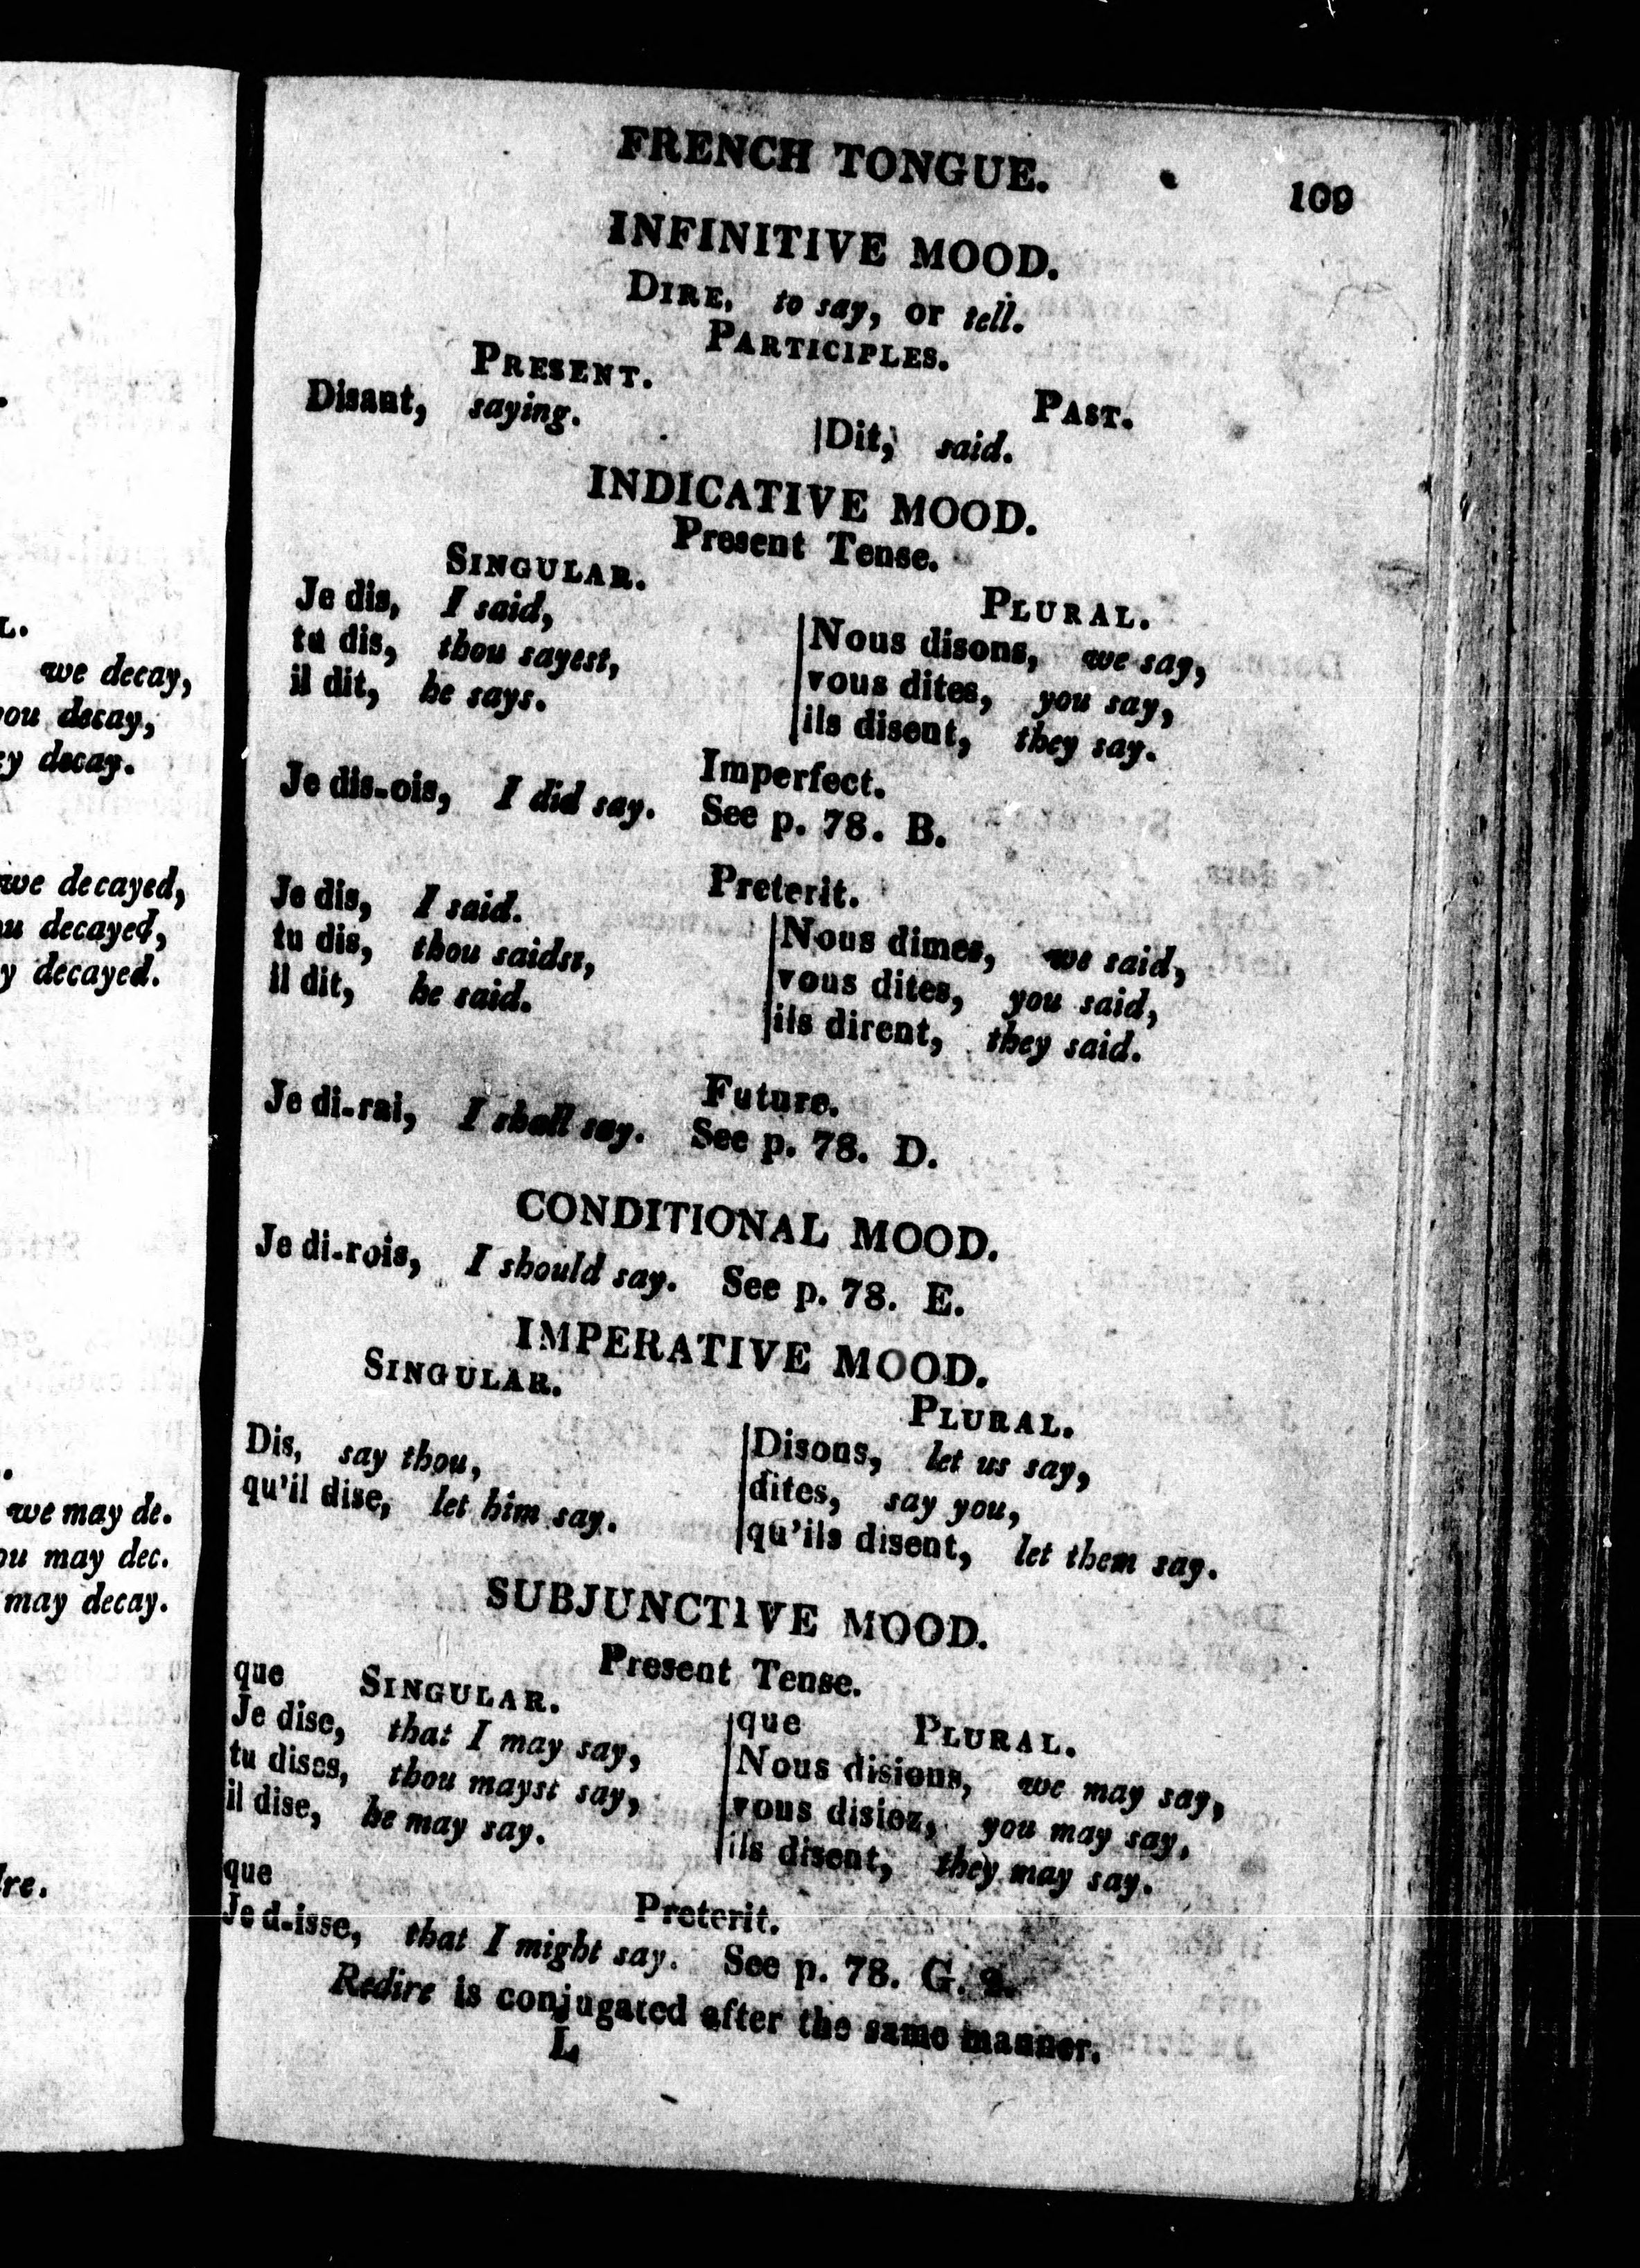 FRENCH TONGUE. 109
INFINITIVE MOOD.
DIRE, to say, or tell.
PARTICIPLES.
PRESENT. PAST.
Disant, saying. |Dit, said.
INDICATIVE MOOD.
Present Tense.
SINGULAR. PLURAL.
Je dis, I said, |Nous disons, we say,
tu dis, thou sayest, |vous dites, you say,
il dit, he says. |ils disent, they say.
Imperfect.
Je dis-ois, I did say. See p. 78. B.
Preterit.
Je dis, I said. |Nous dimes, we said,
tu dis, thou saidst, |vous dites, you said,
il dit, he said. |ils dirent, they said.
Future.
Je di-rai, I shall say. See p. 78. D.
CONDITIONAL MOOD.
Je di-rois, I should say. See p. 78. E.
IMPERATIVE MOOD.
SINGULAR. PLURAL.
Dis, say thou, |Disons, let us say,
qu'il dise, let him say. |dites, say you,
|qu'ils disent, let them say.
SUBJUNCTIVE MOOD.
Present Tense.
que SINGULAR. |que PLURAL.
Je dise, that I may say, |Nous disions, we may say,
tu dises, thou mayst say, |vous disiez, you may say,
il dise, he may say. |ils disent, they may say.
que Preterit.
Je d-isse, that I might say. See p. 78. G. 2.
Redire is conjugated after the same manner.
L
we decay,
decay,
decay.
we decayed,
decayed,
decayed.
we may de.
may dec.
may decay.